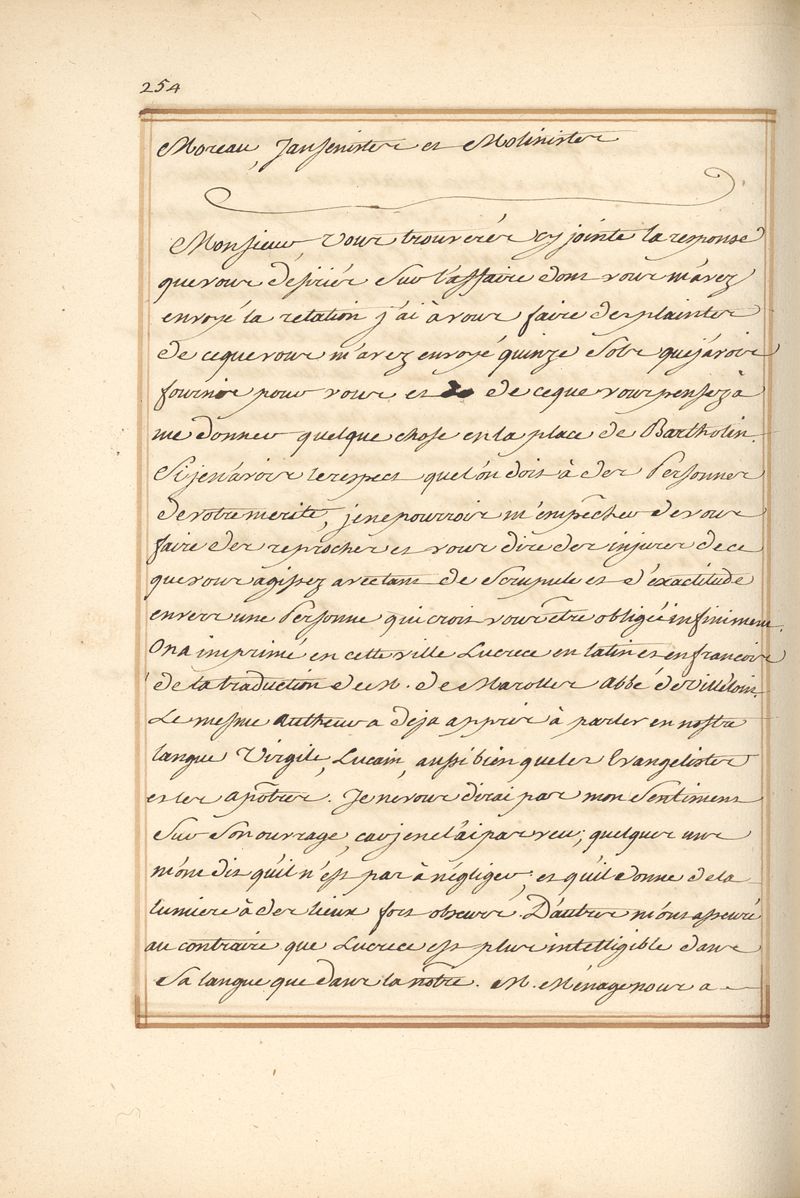 254
Moreau, Jansenistes et Molinistes
Monsieur vous trouverés cy jointe la response
que vous désiriés sur l'affaire dont vous m'avez
envoyé la relation j'ai à vous faire des plaintes
de ce que vous m'avez envoyé quinze sols que j'avois
fournis pour vous et de ce que vous pensez à
me donner quelque chose en la place de Bartholin.
Si je n'avois le respect que l'on doit à des Personnes
de votre merite, je ne pourrois m'empêcher de vous
faire des reproches et vous dire des injures de ce
que vous agissez avec tant de scrupule et d'éxactitude
envers une Personne qui croit vous être obligée infiniment.
On a imprimé en cette ville Lucrece en latin et en francois
de la traduction de M. de Marolles Abbé de Villeloin.
Le mesme Autheur a deja appris à parler en nostre
langue Virgile, Lucain, aussi bien que les Evangelistes
et les apôtres. Je ne vous dirai pas mon sentiment
sur son ouvrage, car je ne l'ai pas veu; quelques uns
m'ont dit qu'il n'est pas à négliger, et qu'il donne de la
lumiere à des lieux fort obscurs. D'autres m'ont asseuré
au contraire que Lucrece est plus intelligible dans
sa langue que dans la nôtre. M. Ménage nous a